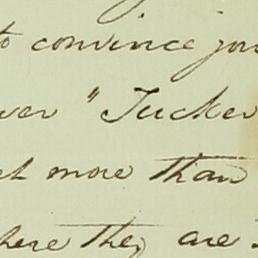 to convince you
"Tucker
more than
where they are